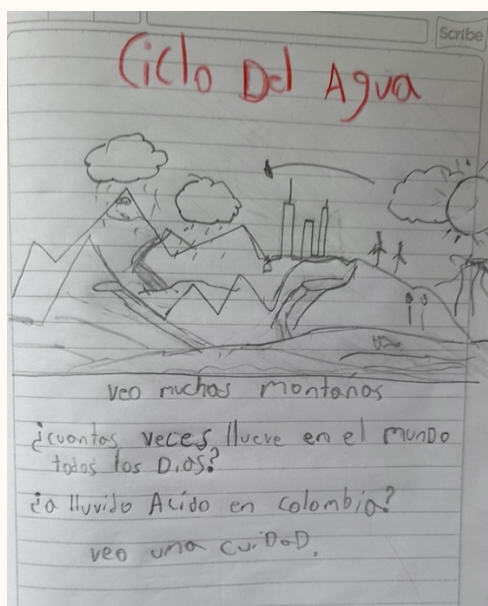 Scribe
Ciclo Del Agua
veo muchas montañas
¿cuantas veces llueve en el mundo
todos los Dias?
¿a lluvido Acido en colombia?
veo uma cuiDaD.